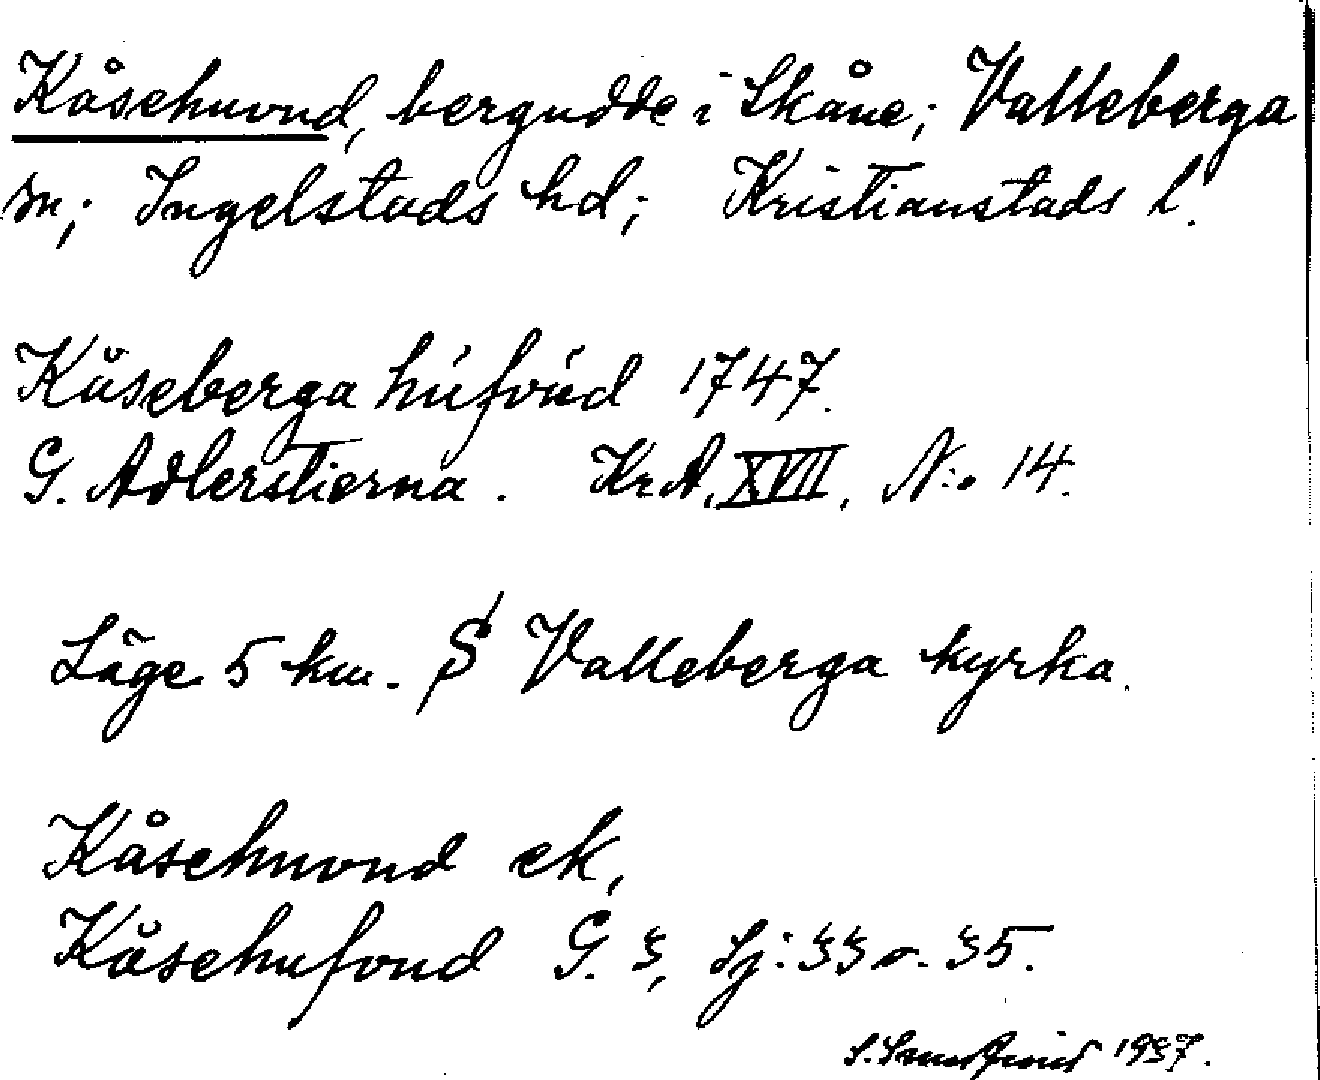 Kåsehuvud, bergudde i Skåne; Valleberga
sn; Ingelstads hd; Kristianstads l.
Kåseberga hufvud 1747.
G. Adlerstierna. Kr.A. XVII. N:o 14.
Läge 5 km. S Valleberga kyrka.
Kåsehuvud ek,
Kåsehufvud G. 3, Sj: 33 o. 35.
1937.